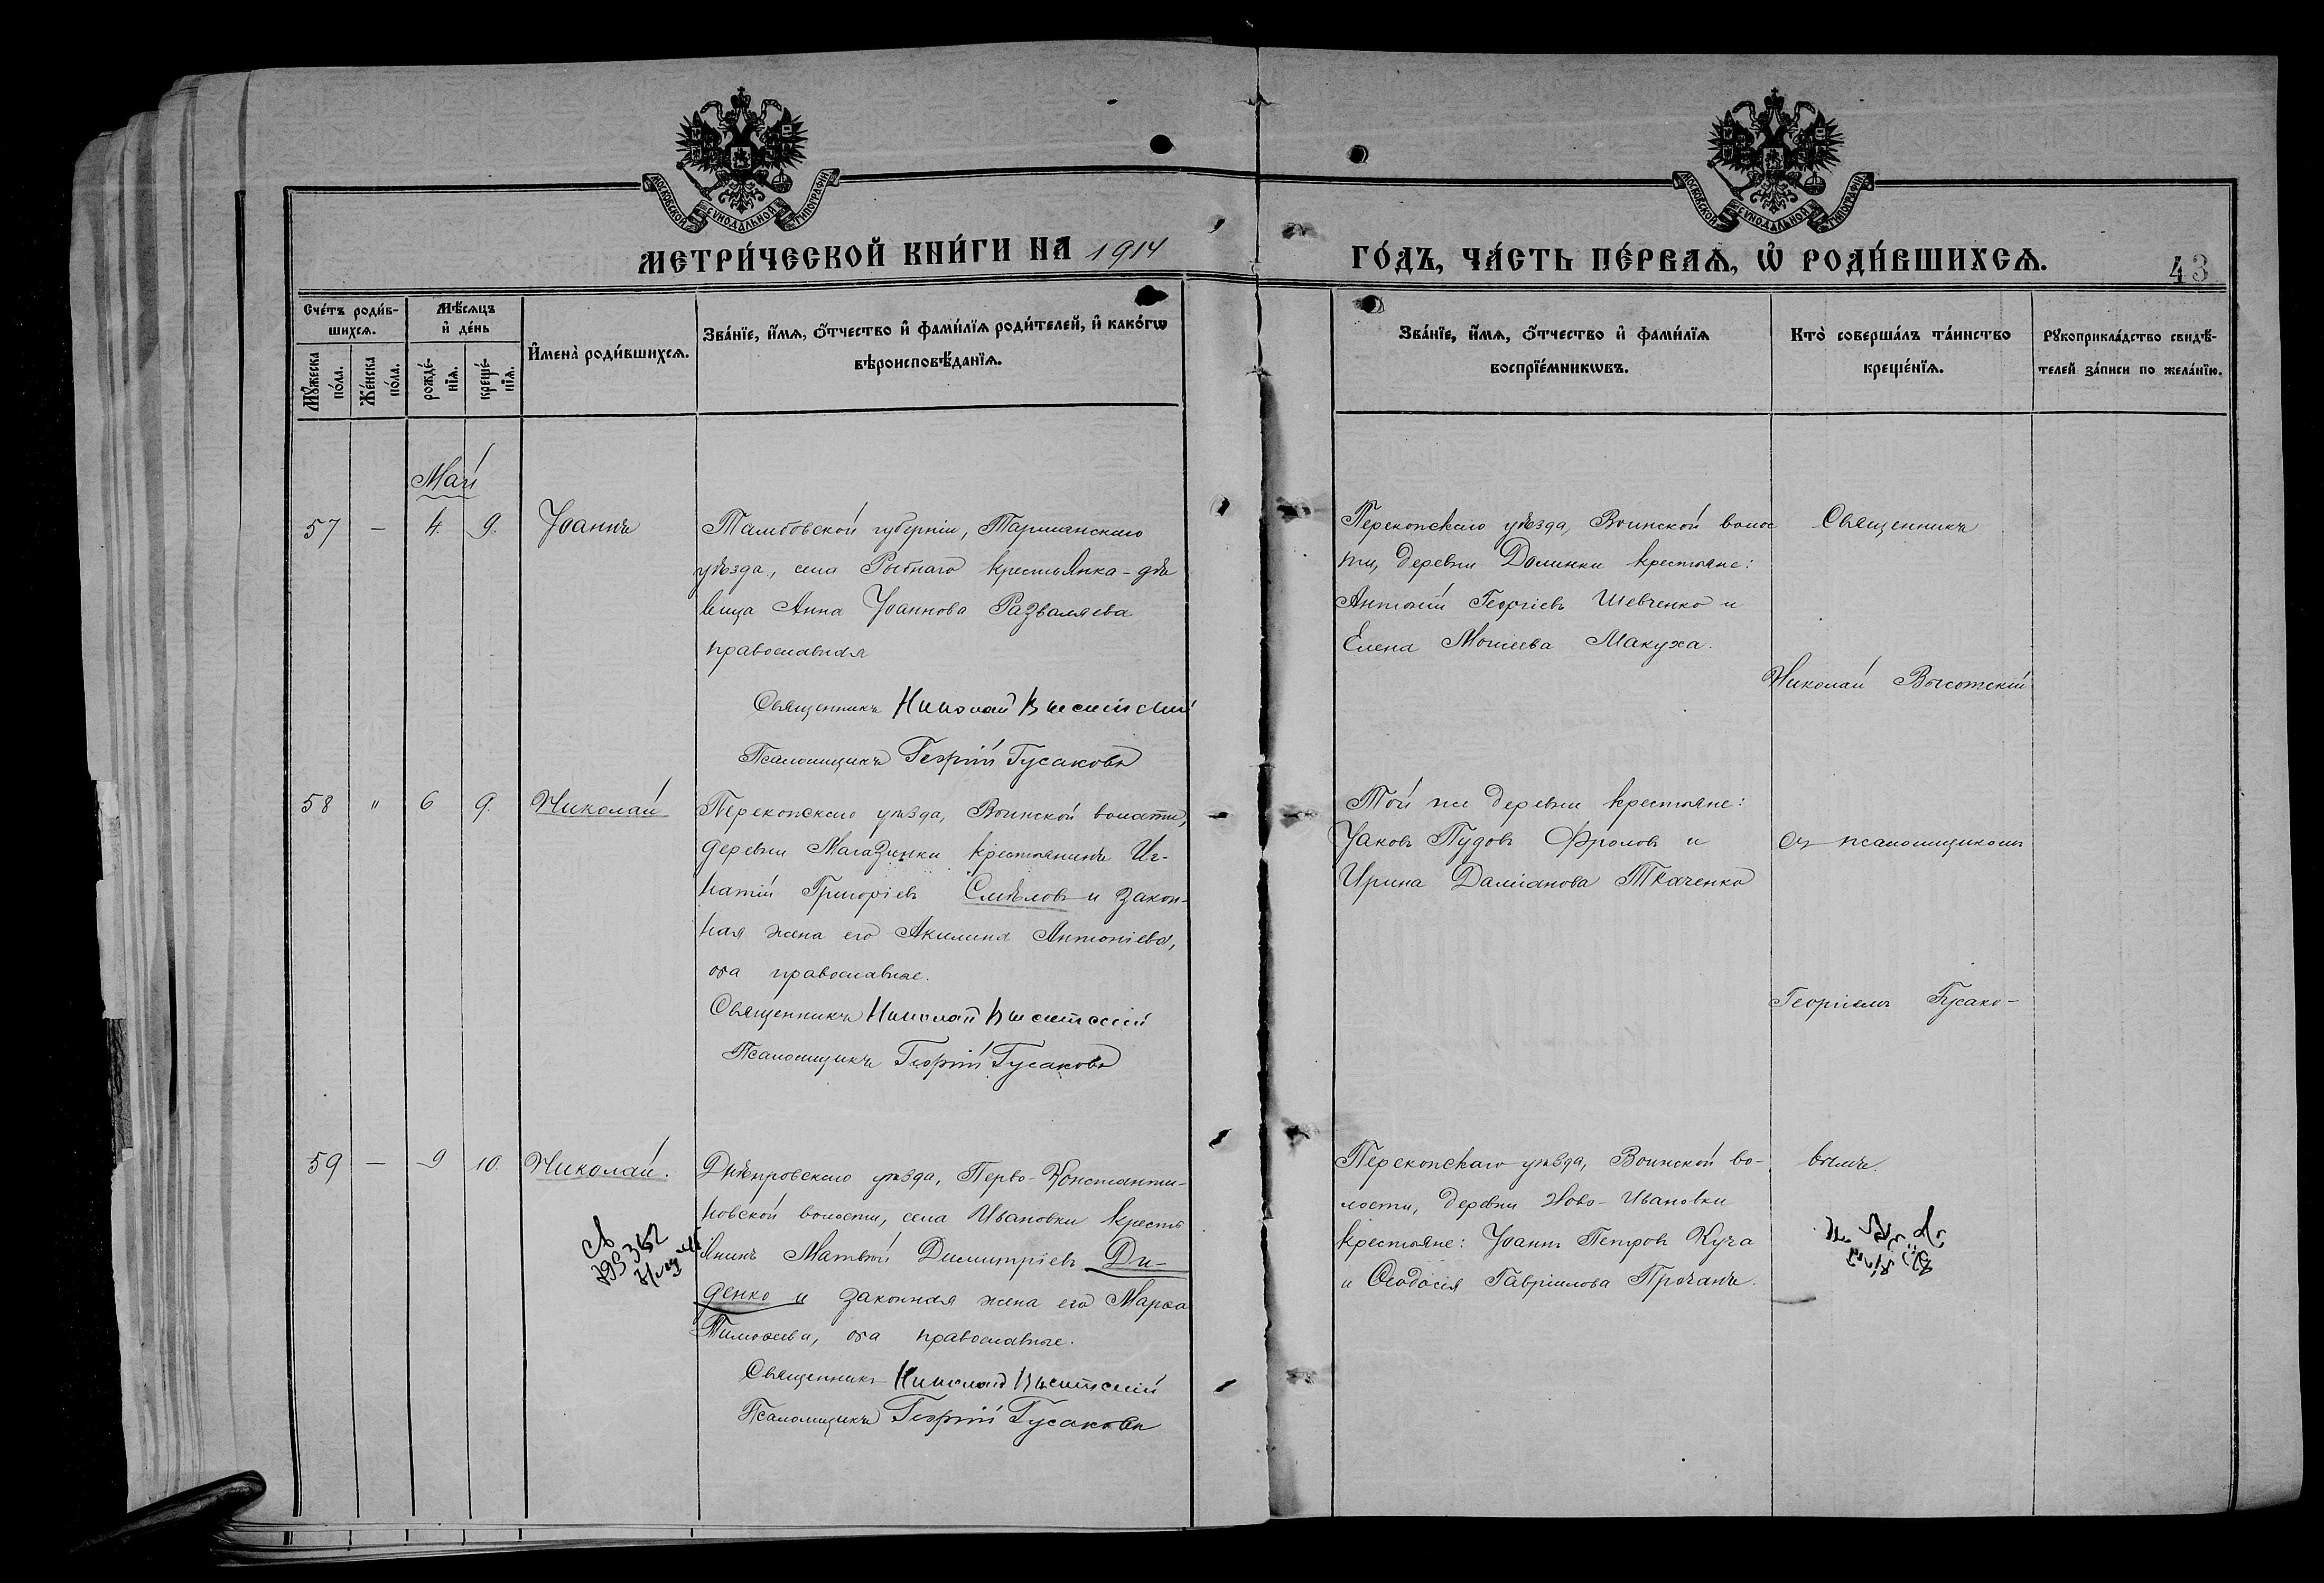 МОСКОВСКОЙ СѴНОДАЛЬНОЙ ТИПОГРАФІИ
МОСКОВСКОЙ СѴНОДАЛЬНОЙ ТИПОГРАФІИ
МЕТРИ́ЧЕСКОЙ КНИ́ГИ НА 1914
ГО́ДЪ, ЧА́СТЬ ПЕ́РВАѦ, Ѽ РОДИ́ВШИХСѦ.
43
Сче́тъ роди́в-
шихсѧ.
Мꙋ́жеска
по́ла.
Же́нска
по́ла.
Мѣ́сѧцъ
и҆ де́нь
рожде́-
нїѧ.
креще́-
нїѧ.
И҆мена̀ роди́вшихсѧ.
Зва́нїе, и҆́мѧ, ѻ҆́тчество и҆ фами́лїѧ роди́телей, и҆ како́гѡ
вѣроисповѣ́данїѧ.
Зва́нїе, и҆́мѧ, ѻ҆́тчество и҆ фами́лїѧ
воспрїе́мникѡвъ.
Кто̀ соверша́лъ та́инство
креще́нїѧ.
Рꙋкоприкла́дство свидѣ́-
телей за́писи по жела́нїю.
Май
57 — 4. 9. Іоаннъ
Тамбовской губерніи,
уѣзда, села Рыбнаго крестьянка-дѣ
вица Анна Іоаннова Разваляева
православная
Священникъ Николай Высотскій
Псаломщикъ Георгій Гусаковъ
Перекопскаго уѣзда, Воинской волос
ти, деревни Долинки крестьяне:
Антоній Георгіевъ Шевченко и
Елена Моисеева Макуха.
Священникъ
Николай Высотскій
58 " 6 9. Николай
Перекопскаго уѣзда, Воинской волости,
деревни Магазинки крестьянинъ Иг-
натій Григоріевъ Смѣловъ и закон-
ная жена его Акилина Антоніева,
оба православные.
Священникъ Николай Высотскій
Псаломщикъ Георгій Гусаковъ
Той же деревни крестьяне:
Іаковъ Пудовъ Фроловъ и
Ирина Даміанова Ткаченко
съ псаломщикомъ
Георгіемъ Гусако-
59 — 9 10. Николай.
Днѣпровскаго уѣзда, Перво-Константи-
новской волости, села Ивановки кресть
янинъ Матвѣй Димитріевъ Ди-
денко и законная жена его Марѳа
Тимоѳеева, оба православные.
Священникъ Николай Высотскій
Псаломщикъ Георгій Гусаковъ
Перекопскаго уѣзда, Воинской во-
лости, деревни Ново-Ивановки
крестьяне: Іоаннъ Петровъ Куча
и Ѳеодосія Гавріилова Прочанъ.
вымъ.